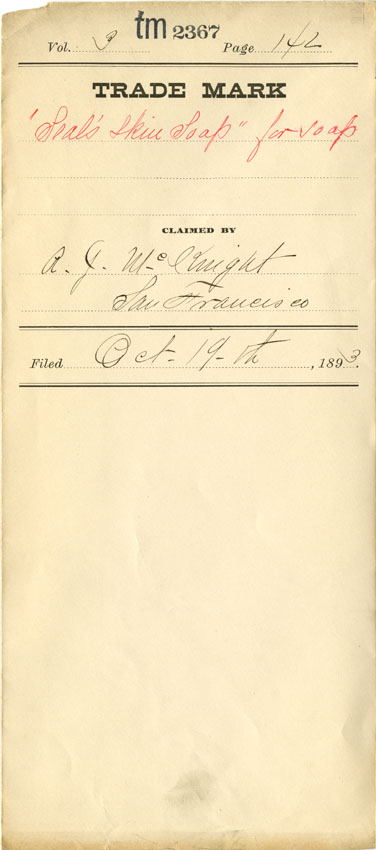 tm 2367
Vol. 3 Page 142
TRADE MARK
"Seal's Skin Soap" for soap
CLAIMED BY
A. J. McKnight
San Francisco
Filed Oct- 19-th, 1893.